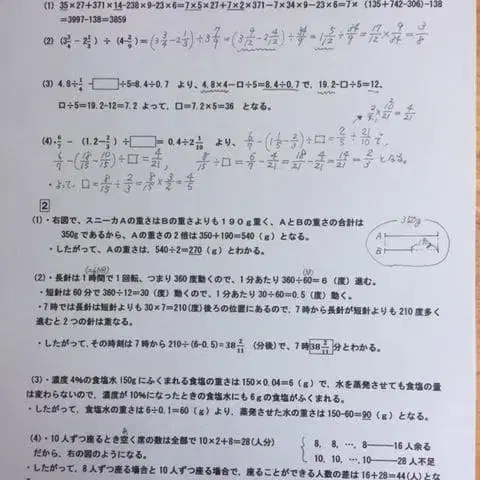 (1) 35×27＋371×14-238×9-23×6＝7×5×27＋7×2×371－7×34×9－23×6＝7×（135+742-306)-138
＝3997-138＝3859
(2) (3¾－2⅓)÷(4-2/9)＝(3 3/4－2 1/3)÷3 7/9＝(3 9/12－2 4/12)÷34/9＝1 5/12÷34/9＝17/12×9/34＝3/8
(3) 4.8÷¼－□÷5＝8.4÷0.7 より、4.8×4－□÷5＝8.4÷0.7で、19.2-□÷5＝12、
□÷5＝19.2－12＝7.2 よって、□＝7.2×5＝36 となる。
2/21×10/21＝4/21
(4)・6/7－(1.2－2/3)÷□＝0.4÷2 1/10 より、6/7－(1 1/5－2/3)÷□＝2/5÷21/10で、
6/7－(18/15－10/15)÷□＝4/21、 8/15÷□＝6/7－4/21＝18/21－4/21＝14/21＝2/3となる。
・よって、□＝8/15÷2/3＝8/15×3/2＝4/5
2
(1)・右図で、スニーカAの重さはBの重さよりも190g重く、AとBの重さの合計は
350gであるから、Aの重さの2倍は350＋190＝540（g）となる。
・したがって、Aの重さは、540÷2＝270（g）とわかる。
350g
A
B
190g
(2)・長針は1時間で1回転、つまり360度動くので、1分あたり360÷60＝6（度）進む。
(＝60分)
(分)
・短針は60分で360÷12＝30（度）動くので、1分あたり30÷60＝0.5（度）動く。
・7時では長針は短針よりも30×7＝210(度)後ろの位置にあるので、7時から長針が短針よりも210度多く
進むと2つの針は重なる。
・したがって、その時刻は7時から210÷(6-0.5)＝38 2/11（分後）で、7時38 2/11分とわかる。
(3)・濃度4%の食塩水150gにふくまれる食塩の重さは150×0.04＝6（g）で、水を蒸発させても食塩の量
は変わらないので、濃度が10%になったときの食塩水にも6gの食塩がふくまれる。
・したがって、食塩水の重さは6÷0.1＝60（g）より、蒸発させた水の重さは150-60＝90（g）となる。
(4)・10人ずつ座るとき空く席の数は全部で10×2＋8＝28(人分)
あ
だから、右の図のようになる。
8、8、…、8―――16人余る
10、10、…、10―――28人不足
・したがって、8人ずつ座る場合と10人ずつ座る場合で、座ることができる人数の差は16＋28＝44(人)とな